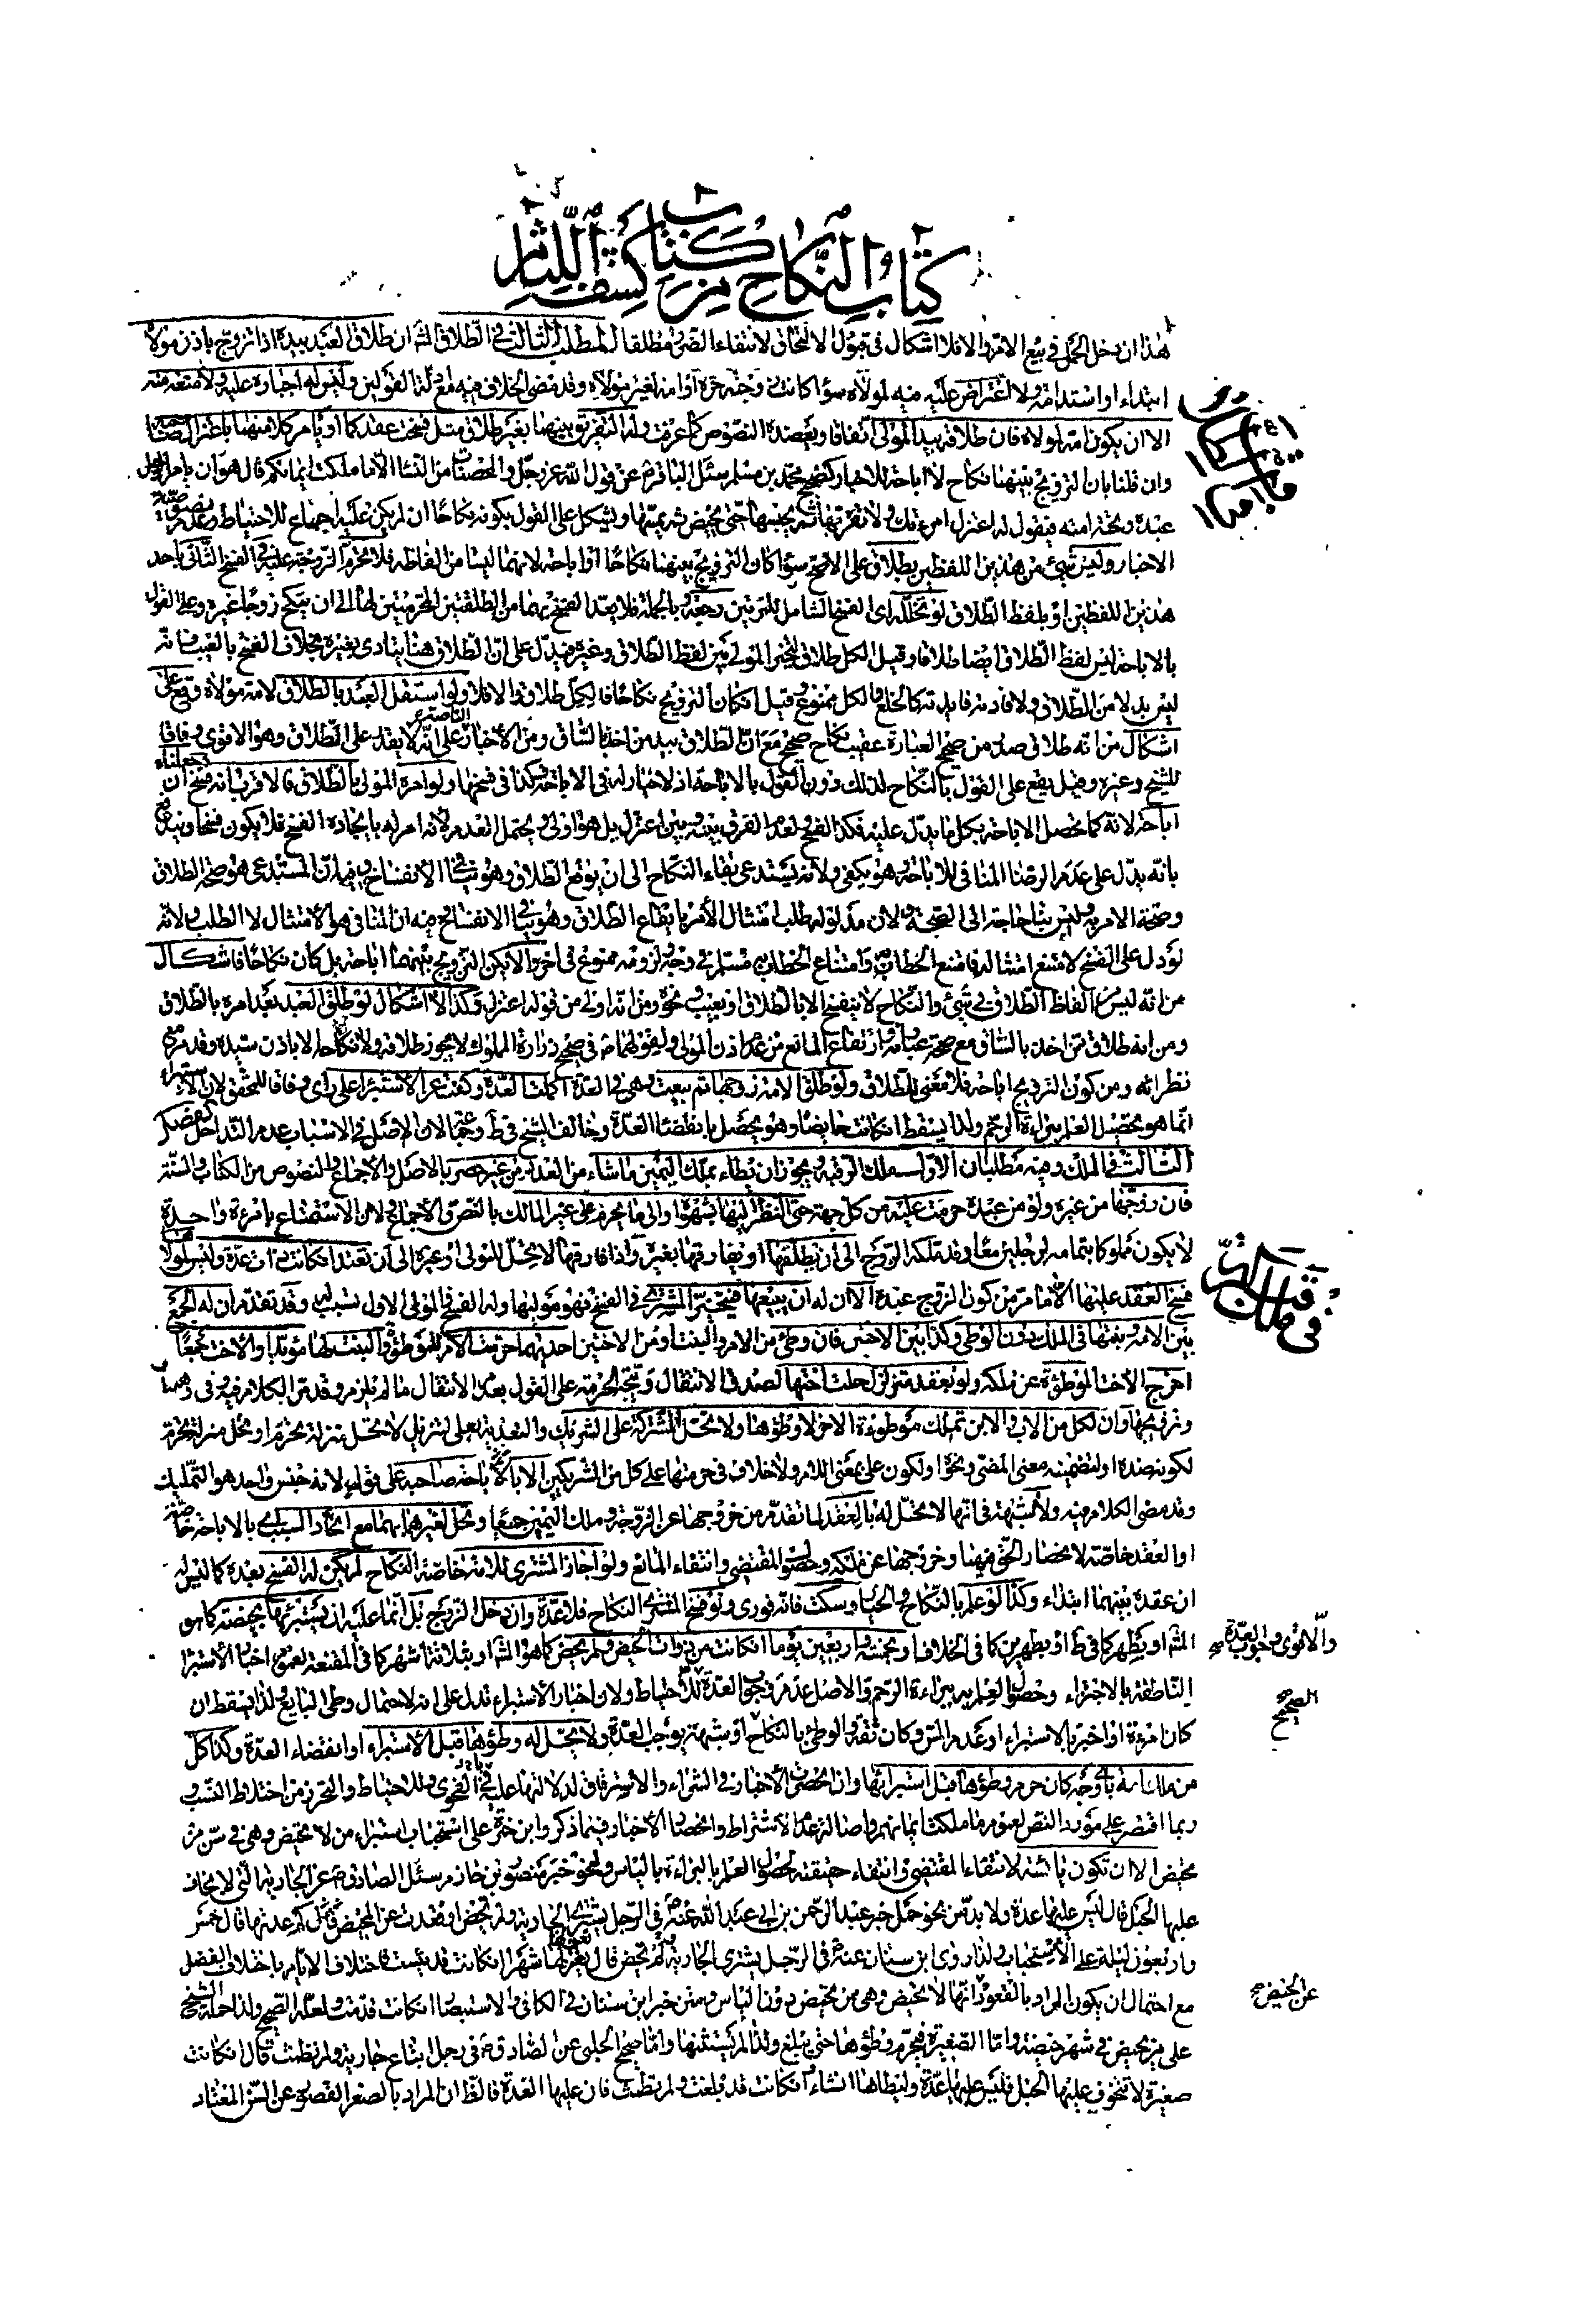 كتاب النكاح من كتاب كشف اللثام
هذا ان دخل الحمل في بيع الام والا فلا اشكال في قبول الالتحاق لانتفاء الضرر مطلقا المطلب الثالث في الطلاق المشه ان طلاق العبد بيده اذا تزوج باذن مولاه
ابتداء او استدامة ولا اعتراض عليه فيه لمولاه سواء كانت زوجته حرة او امة لغير مولاه وقد مضى الخلاف فيه مع ادلة القولين وليس له اجباره عليه ولا منعه منه
الا ان يكون امة لمولاه فان طلاقه بيد المولى اتفاقا ويعضده النصوص كما عرفت وله التفريق بينهما بغير طلاق مثل فسخت عقدكما او يامر كلا منهما باعتزال صاحبه
وان قلنا بان التزويج بينهما نكاح لا اباحة للاخبار كصحيح محمد بن مسلم سئل الباقر ع عن قول الله عز وجل والمحصنات من النساء الا ما ملكت ايمانكم قال هو ان يامر الرجل
عبده وتحته امته فيقول له اعتزل امرءتك ولا تقربها ثم يحبسها حتى تحيض ثم يمسها ويشكل على القول بكونه نكاحا ان لم يكن عليه اجماع للاحتياط وعدم نصوصية
الاخبار وليس شيء من هذين اللفظين بطلاق على الاصح سواء كان التزويج بينهما نكاحا او اباحة لانهما ليسا من الفاظه فلا تحرم الزوجة عليه في الفسخ الثاني باحد
هذين اللفظين او بلفظ الطلاق لو تخلله اى الفسخ الشامل للمرتين رجعة وبالجملة فلا يعد الفسخ بهما من الطلقتين المحرمتين لها الى ان تنكح زوجا غيره وعلى القول
بالاباحة ليس لفظ الطلاق ايضا طلاقا وقيل الكل طلاق لتخير المولى بين لفظ الطلاق وغيره فيدل على ان الطلاق هنا يتادى بغيره بخلاف الفسخ بالعيب فانه
ليس بدلا من الطلاق ولافادته فايدته كالخلع والكل ممنوع وقيل ان كان التزويج نكاحا فالكل طلاق والا فلا ولو استقل العبد بالطلاق لامة مولاه وقع على
اشكال من انه طلاق صدر من صحيح العبارة عقيب نكاح صحيح مع ان الطلاق بيد من اخذ بالساق ومن الاخبار الناصة على انه لا يقدر على الطلاق وهو الاقوى وفاقا
للشيخ وغيره وقيل يقع على القول بالنكاح لذلك دون القول بالاباحة اذ لا خيار له في الاباحة وكذا في فسخها ولو امره المولى بالطلاق فالاقرب انه فسخ ان جعلناه
اباحة لانه كما تحصل الاباحة بكل ما يدل عليه فكذا الفسخ ولعدم الفرق بينه وبين اعتزل بل هو اولى ويحتمل العدم لانه امر له بايجاده الفسخ فلا يكون فسخا ويندفع
بانه يدل على عدم الرضا المنافي للاباحة وهو يكفى ولانه يستدعى بقاء النكاح الى ان يوقع الطلاق وهو ينافي الانفساخ وفيه ان المستدعى هو صحة الطلاق
وصحة الامر به وليس بنا حاجة الى الصحة ولان مدلوله طلب امتثال الامر بايقاع الطلاق وهو ينافي الانفساخ وفيه ان المنافي هو الامتثال لا الطلب ولانه
لو دل على الفسخ لامتنع امتثاله فامتنع الخطاب به وامتناع الخطاب به مستلزم وجوده لعدمه ممنوع في اخر والا يكن التزويج بينهما اباحة بل كان نكاحا فاشكال
من انه ليس من الفاظ الطلاق في شيء والنكاح لا ينفسخ الا بالطلاق او بعيب ونحوه ومن انه اولى من قوله اعتزل وكذا الاشكال لو طلق العبد بعد امره بالطلاق
ومن انه طلاق ممن اخذ بالساق مع صحة عبارته وارتفاع المانع من عدم اذن المولى ولقولهما ع في صحيح زرارة المملوك لا يجوز طلاقه ولا نكاحه الا باذن سيده وقد مر مع
نظرائه ومن كون التزويج اباحة فلا معنى للطلاق ولو طلق الامة زوجها ثم بيعت وهي في العدة اكملت العدة وكفت عن الاستبراء على راى وفاقا للمحقق لان الاستبراء
انما هو لتحصيل العلم ببراءة الرحم ولذا يسقط ان كانت حايضا وهو يحصل بانقضاء العدة وخالف الشيخ في ط وجماعة لان الاصل في الاسباب عدم التداخل الفصل
الثالث في الملك وفيه مطلبان الاول ملك الرقبة ويجوز ان يطاء بملك اليمين ما شاء من العدد من غير حصر بالاصل والاجماع والنصوص من الكتاب والسنة
فان زوجها من غيره ولو من عبده حرمت عليه من كل جهة حتى النظر اليها بشهوة او الى ما يحرم على غير المالك بالنص والاجماع ولان الاستمتاع بامرءة واحدة
لا يكون مملوكا بتمامه لرجلين معا وقد ملكه الزوج الى ان يطلقها او يفارقها بغيره واذا فارقها لا تحل للمولى او غيره الى ان تعتد ان كانت ذات عدة وليس للمولى
فسخ العقد عليها الا ما مر من كون الزوج عبده الا ان له ان يبيعها فيتخير المشترى في الفسخ فهو موليها وله الفسخ والمولى الاول سبب له وقد تقدم ان له الجمع
بين الامة وبنتها في الملك دون الوطى وكذا بين الاختين فان وطئ من الام والبنت او من الاختين احديهما حرمت الام للموطوئة والبنت لها مؤبدا والاخت جمعا
اخرج الاخت الموطوءة عن ملكه ولو بعقد متزلزل حلت اختها لصدق الانتقال ويتجه الحرمة على القول بعدم الانتقال ما لم يلزم وقد مر الكلام فيه وفي
وان لكل من الاب والابن تملك موطوءة الاخر لا وطؤها ولا تحل المشتركة على الشريك والتعدية بعلى لتنزيل لا تحل منزلة تحرم او تحل منزلة تحرم
لكونه ضده او لتضمينه معنى المضى ونحوه او لكون على بمعنى اللام ولا خلاف في حرمتها على كل من الشريكين الا باباحة صاحبه على قول لانه جنس واحد هو التمليك
وقد مضى الكلام فيه ولا شبهة في انها لا تحل له بالعقد لما تقدم من خروجها عن الزوجة وملك اليمين جميعا وتحل لغيرهما بهما مع اتحاد السبب بالاباحة خاصة
او العقد خاصة لانحصار الحق فيهما وخروجها عن ملكه وحصول المقتضى وانتفاء المانع ولو اجاز المشترى للامة خاصة النكاح لم يكن له الفسخ بعده كما ليس له
ان عقده بينهما ابتداء وكذا لو علم بالنكاح والخيار وسكت فانه فورى ولو فسخ المشترى النكاح فلا عدة وان دخل الزوج بل انما عليه ان يستبرئها بحيضة كما هو
المشه او بطهر كما في ط او بطهرين كما في الخلاف او بخمسة واربعين يوما ان كانت من ذوات الحيض ولم تحض كما هو المشه او بثلاثة اشهر كما في المقنعة لعموم اخبار الاستبراء
والا قوى وجوب العدة
الناطقة بالاجتزاء وحصول العلم به ببراءة الرحم والاصل عدم وجوب العدة للاحتياط ولان اخبار الاستبراء تدل على انه لاحتمال وطى البايع ولذا يسقط ان
الصحيح
كان امرءة او اخبر بالاستبراء او عدم المس وكان ثقة والوطئ بالنكاح او شبهته يوجب العدة ولا يحل له وطؤها قبل الاستبراء او انقضاء العدة وكذا كل
من ملك امة باى وجه كان حرم وطؤها قبل استبرائها وان اختص الاخبار في الشراء والاسترقاق لدلالتها عليه في الفحوى وللاحتياط والتحرز من اختلاط النسب
ربما اقتصر على مورد النص لعموم ما ملكت ايمانهم واصالة عدم الاشتراط واختصاص الاخبار فيما ذكر وابن حمزة على استحباب استبراء من لا تحيض وهي في سن من
تحيض الا ان تكون يائسة لانتفاء المقتضى وانتفاء حقيقته لحصول العلم بالبراءة بالياس ولنحو خبر منصور بن حازم سئل الصادق ع عن الجارية التي لا يخاف
عليها الحبل قال ليس عليها عدة ولا بد من نحو حمل خبر عبد الرحمن بن ابى عبد الله عنه ع في الرجل يشترى الجارية ولم تحض او قعدت عن المحيض كم عدتها قال خمس
واربعون ليلة على الاستحباب ولذا روى ابن سنان عنه ع في الرجل يشترى الجارية ولم تحض قال يعتزلها شهرا ان كانت قد يئست فاختلاف الايام باختلاف الفضل
مع احتمال ان يكون المراد بالقعود انها لا تحيض وهي من تحيض دون الياس ومتن خبر ابن سنان في الكافي والاستبصار ان كانت قد مست ولعله الصحيح ولذا حمله الشيخ
عن الحيض
على من تحيض في شهر حيضة واما الصغيرة فيحرم وطؤها حتى تبلغ ولذا لم يستثنها واما صحيح الحلبى عن الصادق ع في رجل ابتاع جارية ولم تطمث قال ان كانت
صغيرة لا تتخوف عليها الحبل فليس عليها عدة وليطاها ان شاء وان كانت قد بلغت ولم تطمث فان عليها العدة فالظ ان المراد بالصغر القصور عن السن المعتاد